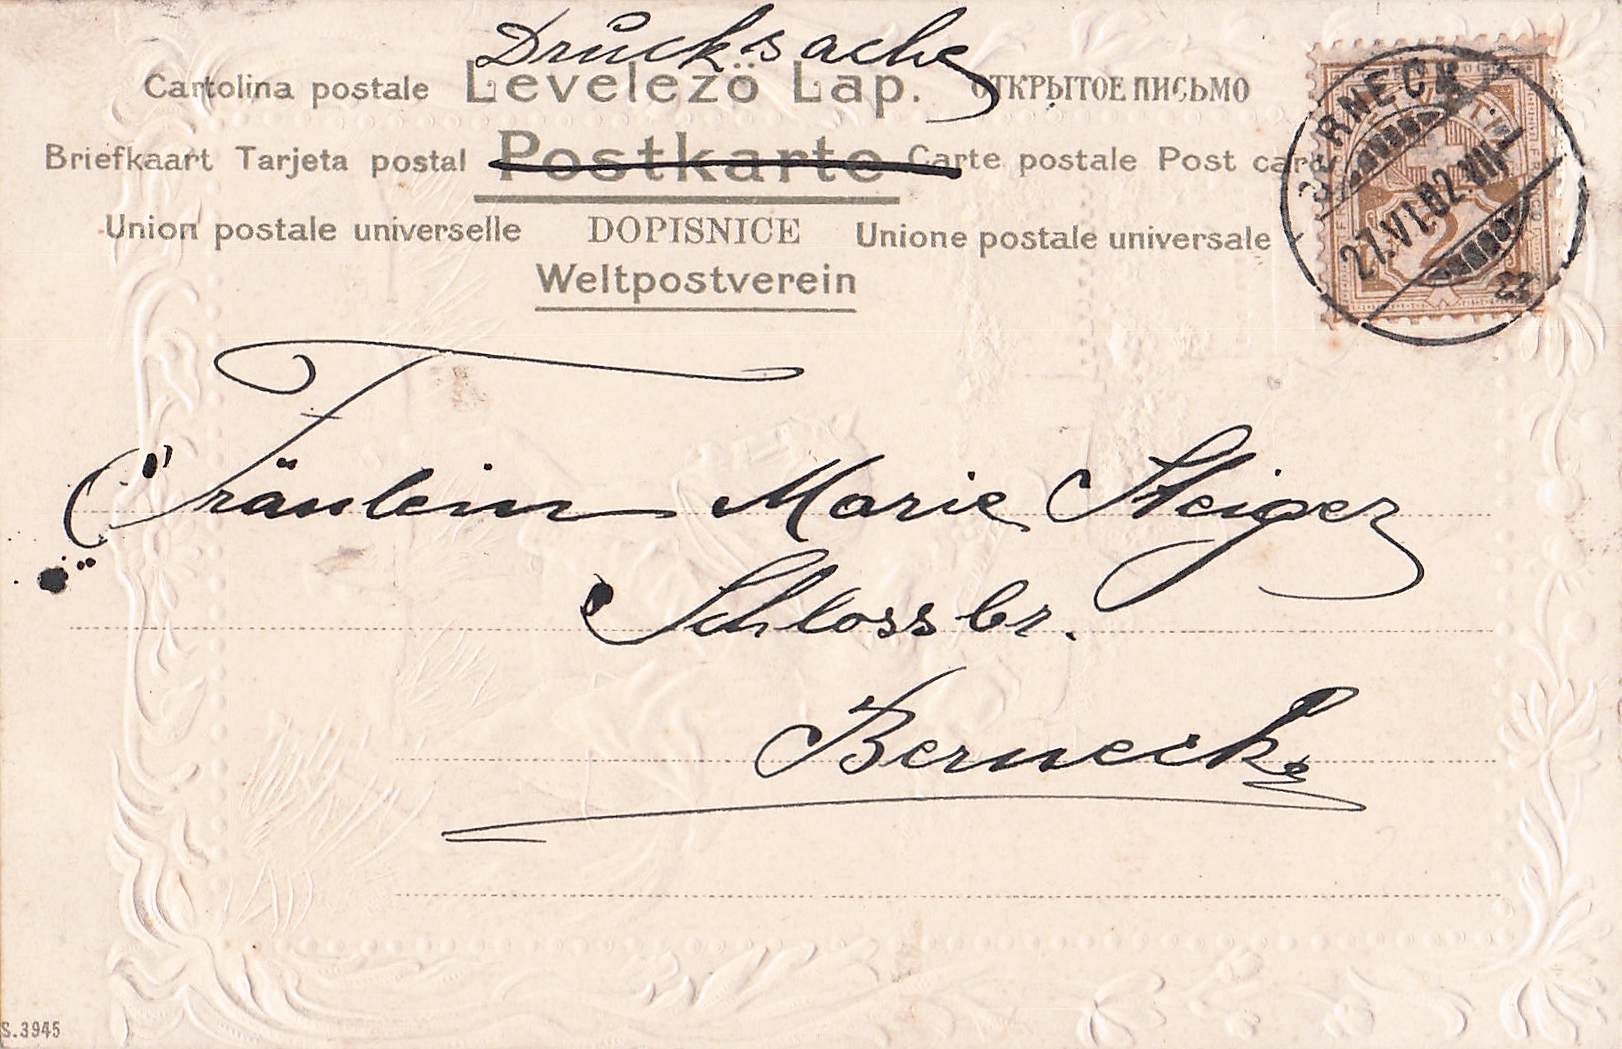 Drucksache
Cartolina postale Levelező Lap. ОТКРЫТОЕ ПИСЬМО
Briefkaart Tarjeta postal Postkarte Carte postale Post card
Union postale universelle DOPISNICE Unione postale universale
Weltpostverein
BERNECK
27.VI.02.VIII
Fräulein Marie Steiger
Schlossbr.
Berneck
S.3945